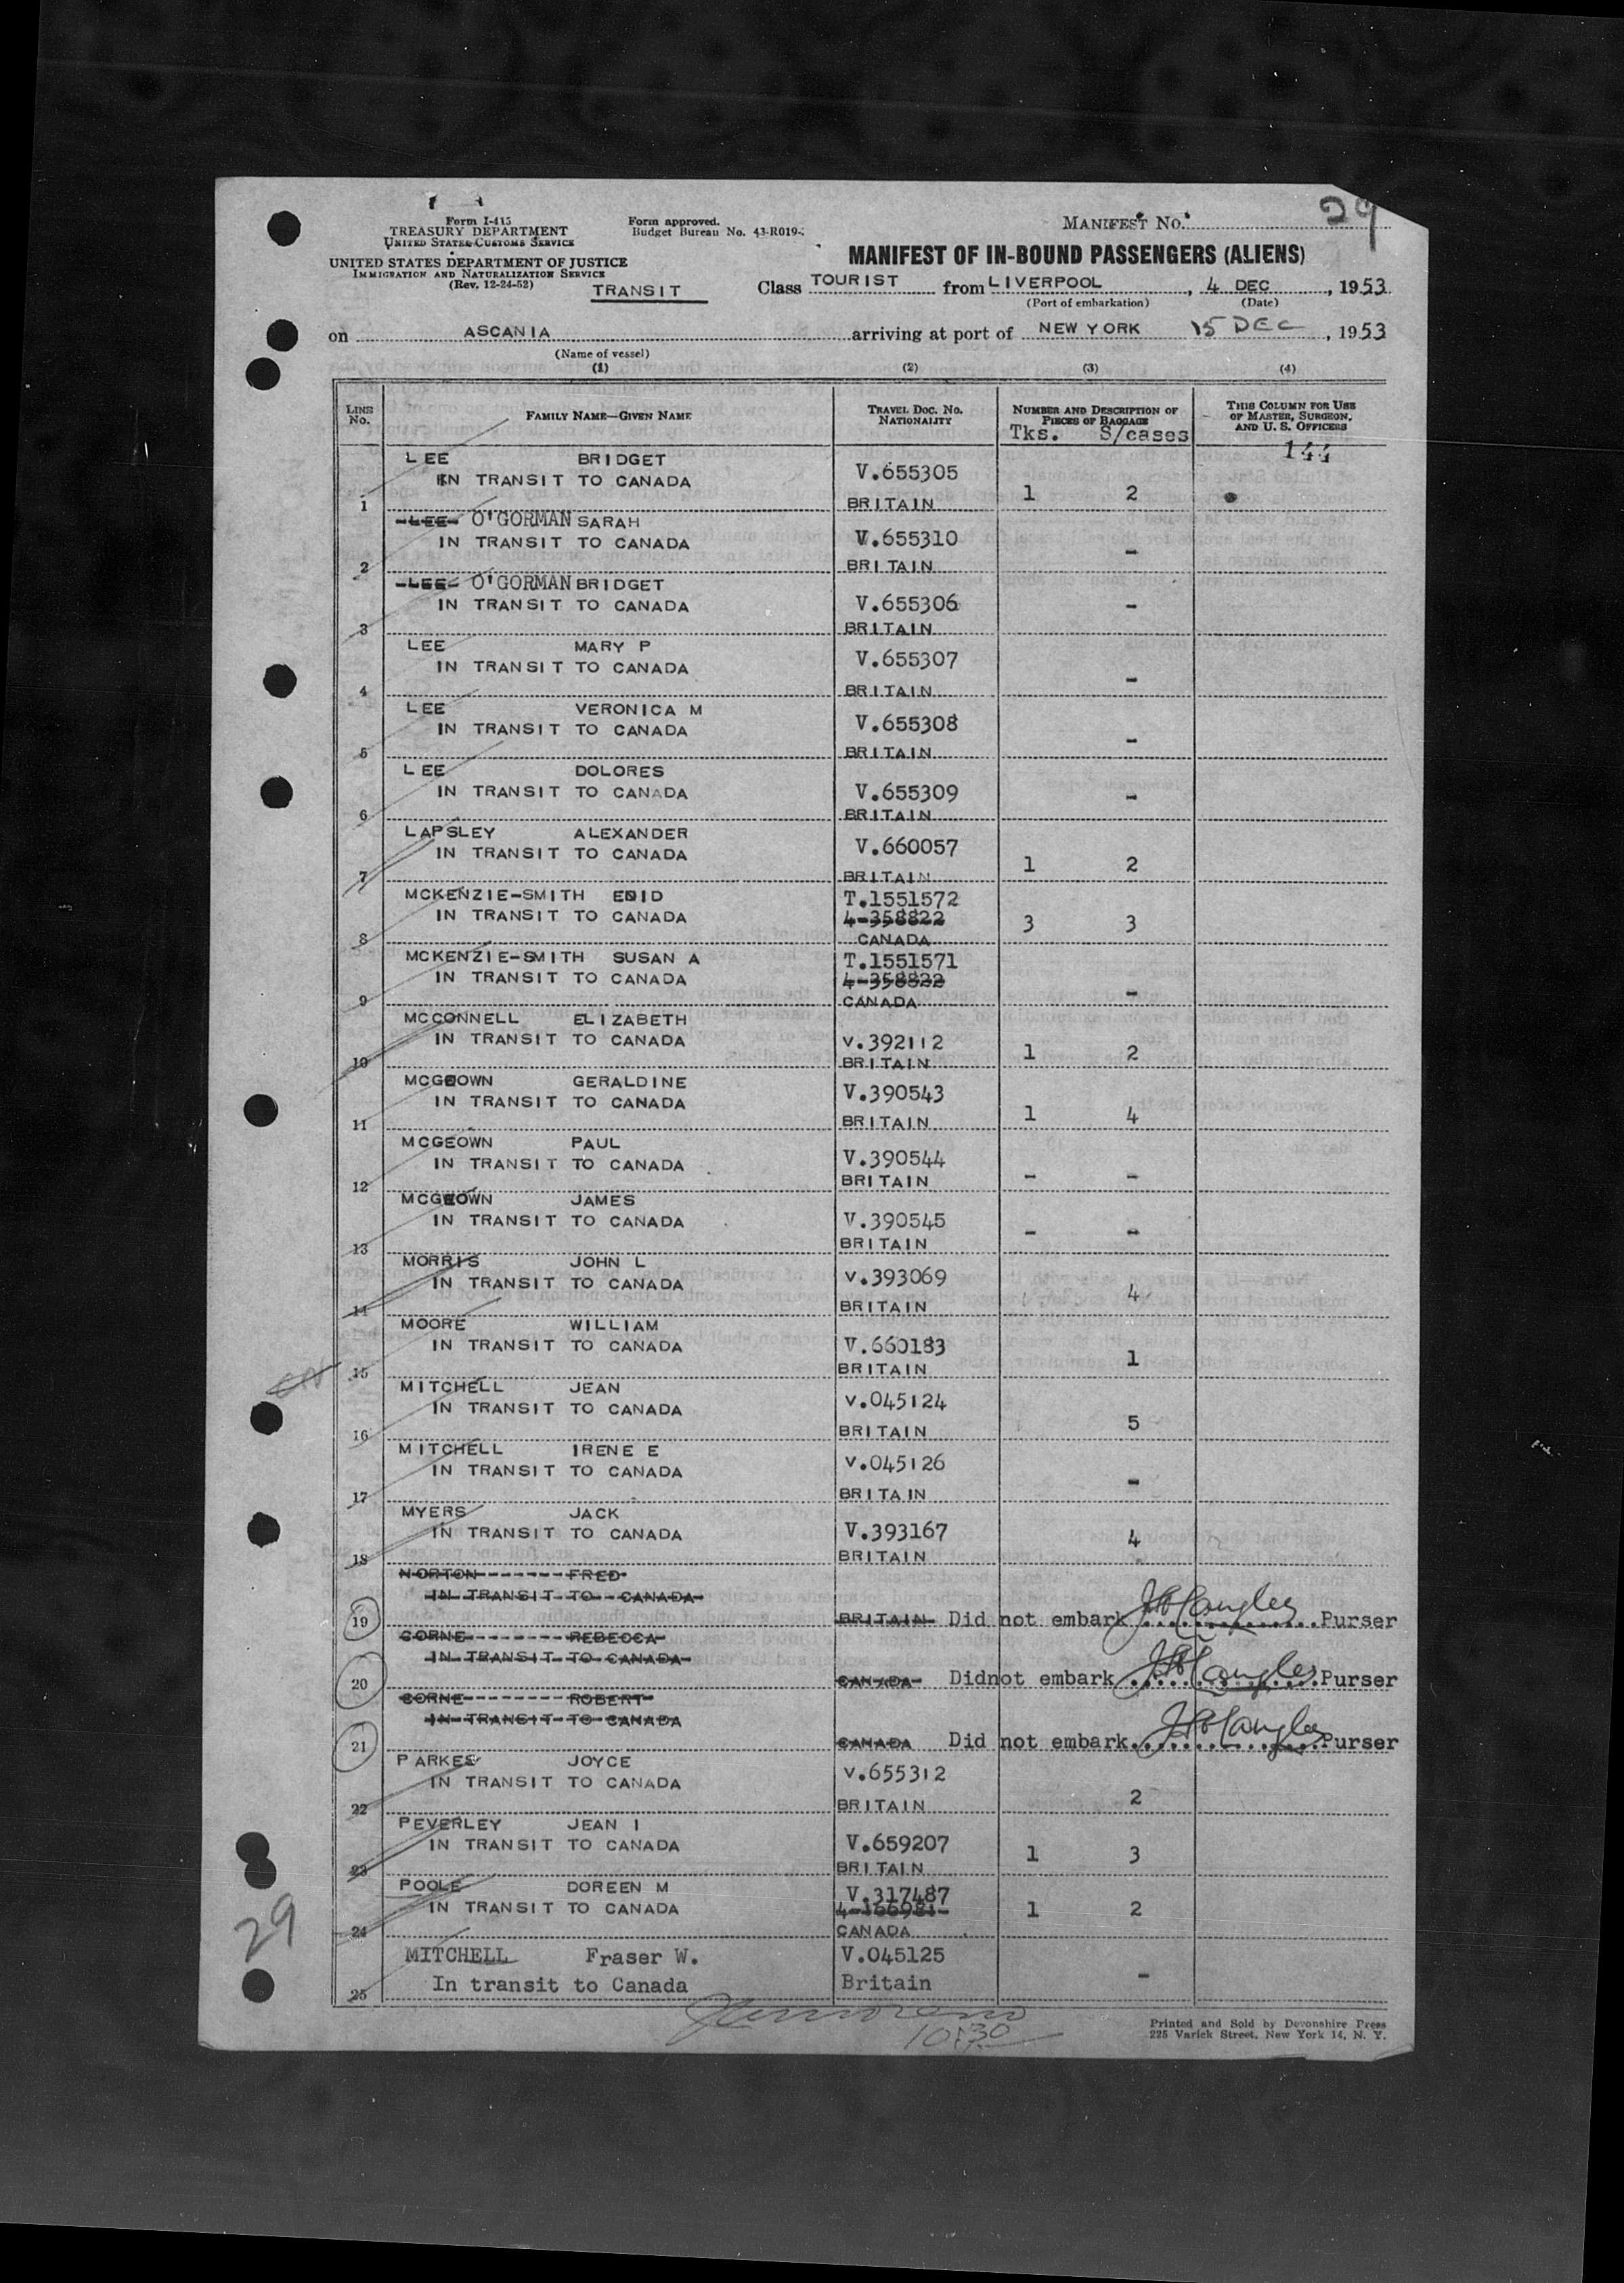 29
Form I-415
TREASURY DEPARTMENT
UNITED STATES CUSTOMS SERVICE
UNITED STATES DEPARTMENT OF JUSTICE
IMMIGRATION AND NATURALIZATION SERVICE
(Rev. 12-24-52)
TRANSIT
Form approved.
Budget Bureau No. 43-R019-
MANIFEST No.
MANIFEST OF IN-BOUND PASSENGERS (ALIENS)
Class TOURIST from LIVERPOOL, 4 DEC, 1953
(Port of embarkation) (Date)
on ASCANIA arriving at port of NEW YORK 15 DEC, 1953
(Name of vessel)
(1) (2) (3) (4)
LINE No. FAMILY NAME—GIVEN NAME TRAVEL DOC. NO. NATIONALITY NUMBER AND DESCRIPTION OF PIECES OF BAGGAGE THIS COLUMN FOR USE OF MASTER, SURGEON, AND U. S. OFFICERS
Tks. S/cases
144
LEE BRIDGET V.655305
IN TRANSIT TO CANADA
1 BRITAIN 1 2
LEE O'GORMAN SARAH V.655310
IN TRANSIT TO CANADA
2 BRITAIN -
LEE O'GORMAN BRIDGET V.655306
IN TRANSIT TO CANADA
3 BRITAIN -
LEE MARY P V.655307
IN TRANSIT TO CANADA
4 BRITAIN -
LEE VERONICA M V.655308
IN TRANSIT TO CANADA
5 BRITAIN -
LEE DOLORES V.655309
IN TRANSIT TO CANADA
6 BRITAIN -
LAPSLEY ALEXANDER V.660057
IN TRANSIT TO CANADA
7 BRITAIN 1 2
MCKENZIE-SMITH ENID T.1551572
IN TRANSIT TO CANADA 4-358822 3 3
8 CANADA
MCKENZIE-SMITH SUSAN A T.1551571
IN TRANSIT TO CANADA 4-358822 -
9 CANADA
MCCONNELL ELIZABETH
IN TRANSIT TO CANADA V.392112
10 BRITAIN 1 2
MCGEOWN GERALDINE V.390543
IN TRANSIT TO CANADA
11 BRITAIN 1 4
MCGEOWN PAUL V.390544
IN TRANSIT TO CANADA
12 BRITAIN - -
MCGEOWN JAMES V.390545
IN TRANSIT TO CANADA
13 BRITAIN - -
MORRIS JOHN L V.393069
IN TRANSIT TO CANADA
14 BRITAIN 4
MOORE WILLIAM V.660183
IN TRANSIT TO CANADA
15 BRITAIN 1
MITCHELL JEAN V.045124
IN TRANSIT TO CANADA
16 BRITAIN 5
MITCHELL IRENE E V.045126
IN TRANSIT TO CANADA
17 BRITAIN -
MYERS JACK V.393167
IN TRANSIT TO CANADA
18 BRITAIN 4
NORTON FRED
IN TRANSIT TO CANADA
19 BRITAIN Did not embark Purser
CORNE REBECCA
IN TRANSIT TO CANADA
20 CANADA Didnot embark Purser
CORNE ROBERT
IN TRANSIT TO CANADA
21 CANADA Did not embark Purser
PARKES JOYCE V.655312
IN TRANSIT TO CANADA
22 BRITAIN 2
PEVERLEY JEAN I V.659207
IN TRANSIT TO CANADA
23 BRITAIN 1 3
POOLE DOREEN M V.317487
IN TRANSIT TO CANADA 4-166981 1 2
24 CANADA
MITCHELL Fraser W. V.045125
In transit to Canada Britain -
25
29
Printed and Sold by Devonshire Press
225 Varick Street, New York 14, N. Y.